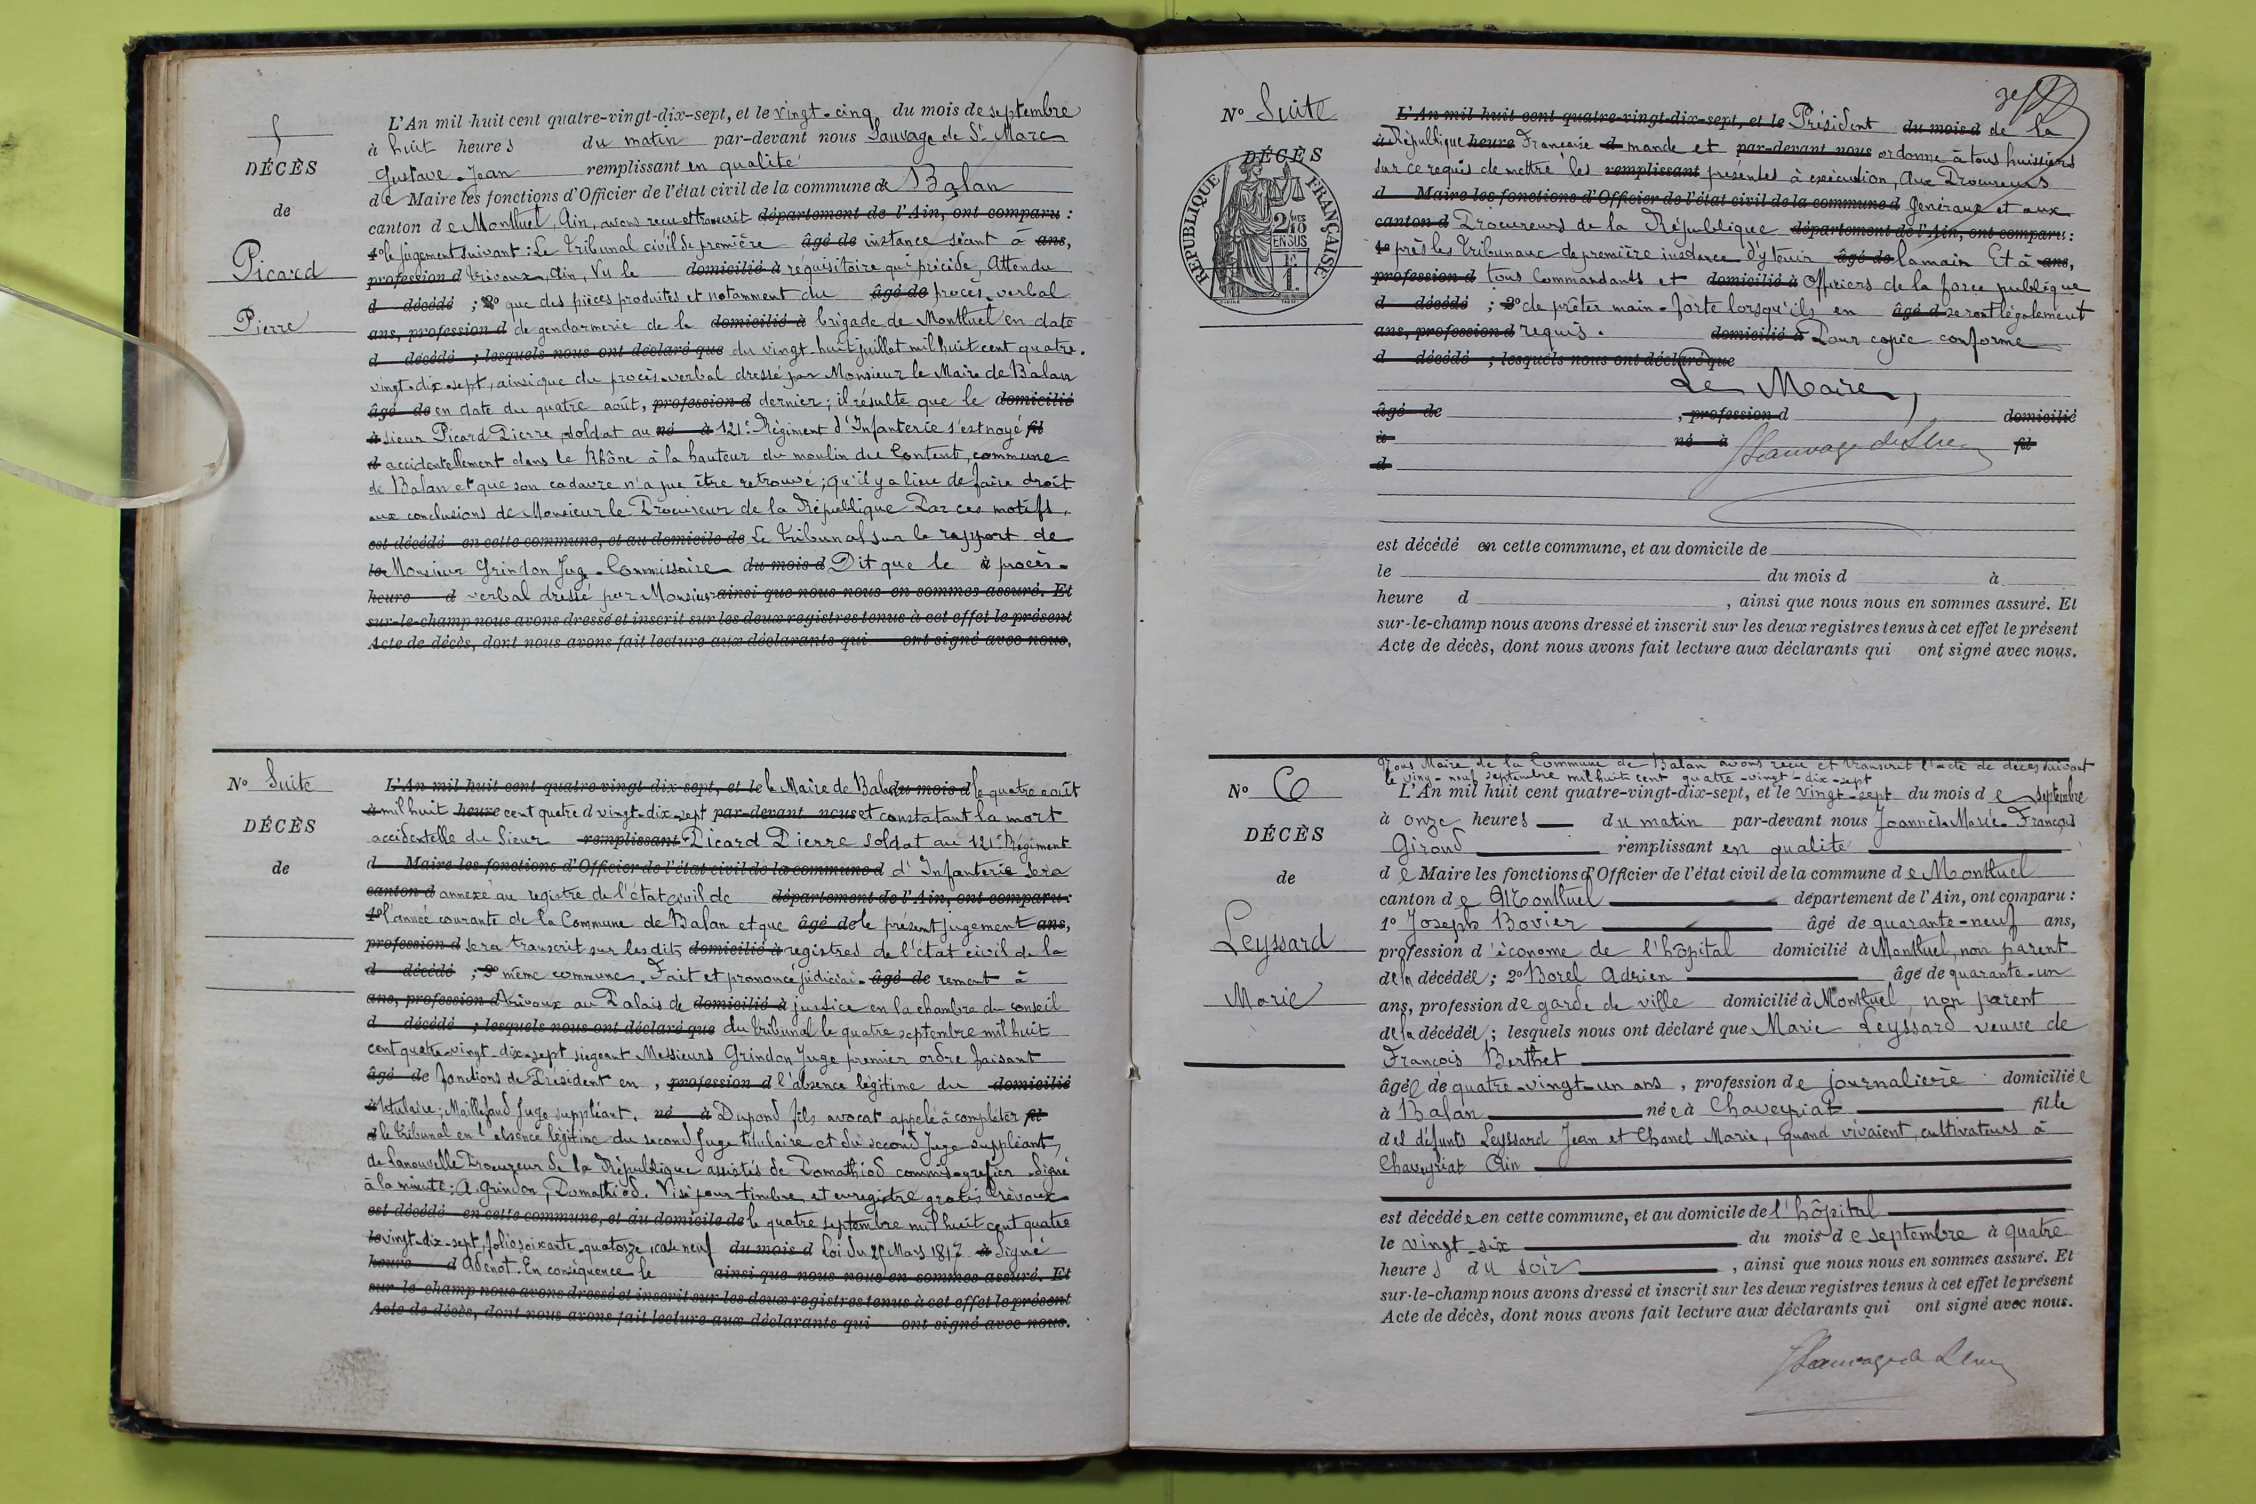 5
DÉCÈS
de
Picard
Pierre
L'An mil huit cent quatre-vingt-dix-sept, et le vingt-cinq du mois de septembre
à huit heures du matin par-devant nous Sauvage de St Marc
Gustave-Jean remplissant en qualité
de Maire les fonctions d'Officier de l'état civil de la commune de Balan
canton de Montluel, Ain, avons reçu et transcrit département de l'Ain, ont comparu :
1o le jugement suivant : Le Tribunal civil de première âgé de instance séant à ans,
profession d Trévoux, Ain, Vu le domicilié à réquisitoire qui précède, Attendu
d décédé ; 2o que des pièces produites et notamment du âgé de procès-verbal
ans, profession d de gendarmerie de la domicilié à brigade de Montluel en date
d décédé ; lesquels nous ont déclaré que du vingt-huit juillet mil huit cent quatre-
vingt-dix-sept, ainsi que du procès-verbal dressé par Monsieur le Maire de Balan
âgé de en date du quatre août, profession d dernier ; il résulte que le domicilié
à sieur Picard Pierre, soldat au né à 121e Régiment d'Infanterie s'est noyé fil
d accidentellement dans le Rhône à la hauteur du moulin du Content, commune
de Balan et que son cadavre n'a pu être retrouvé ; qu'il y a lieu de faire droit
aux conclusions de Monsieur le Procureur de la République Par ces motifs,
est décédé en cette commune, et au domicile de Le Tribunal sur le rapport de
le Monsieur Grindon Jug-Commissaire du mois d Dit que le à procès-
heure d verbal dressé par Monsieur ainsi que nous nous en sommes assuré. Et
sur-le-champ nous avons dressé et inscrit sur les deux registres tenus à cet effet le présent
Acte de décès, dont nous avons fait lecture aux déclarants qui ont signé avec nous.
No Suite
DÉCÈS
de
L'An mil huit cent quatre-vingt-dix-sept, et le le Maire de Balan du mois d le quatre août
à mil huit heure cent quatre d vingt-dix-sept par-devant nous et constatant la mort
accidentelle du Sieur remplissant Picard Pierre soldat au 121e Régiment
d Maire les fonctions d'Officier de l'état civil de la commune d d'Infanterie sera
canton d annexé au registre de l'état civil de département de l'Ain, ont comparu :
1o l'année courante de la Commune de Balan et que âgé de le présent jugement ans,
profession d sera transcrit sur les dits domicilié à registres de l'état civil de la
d décédé ; 2o même commune. Fait et prononcé judiciai- âgé de rement à
ans, profession d Trévoux au Palais de domicilié à justice en la chambre du conseil
d décédé ; lesquels nous ont déclaré que du tribunal le quatre septembre mil huit
cent quatre-vingt-dix-sept siégeant Messieurs Grindon Juge premier ordre faisant
âgé de fonctions de Président en , profession d l'absence légitime du domicilié
à titulaire ; Maillefaud Juge suppléant, né à Dupond fils avocat appelé à compléter fil
d le Tribunal en l'absence légitime du second Juge titulaire et du second Juge suppléant,
de Lanouvelle Procureur de la République assistés de Domathiod commis-greffier Signé
à la minute : A. Grindon, Domathiod. Visé pour timbre et enregistré gratis Trévoux
est décédé en cette commune, et au domicile de le quatre septembre mil huit cent quatre
le vingt-dix-sept, folio soixante-quatorze, case neuf du mois d Loi du 25 Mars 1817 à Signé
heure d Adenot. En conséquence le ainsi que nous nous en sommes assuré. Et
sur-le-champ nous avons dressé et inscrit sur les deux registres tenus à cet effet le présent
Acte de décès, dont nous avons fait lecture aux déclarants qui ont signé avec nous.
No Suite
DÉCÈS
RÉPUBLIQUE FRANÇAISE
2/10es
EN SUS
1F
L'An mil huit cent quatre-vingt-dix-sept, et le Président du mois d de la
à République heure Française d mande et par-devant nous ordonne à tous huissiers
sur ce requis de mettre les remplissant présentes à exécution, Aux Procureurs
d Maire les fonctions d'Officier de l'état civil de la commune d Généraux et aux
canton d Procureurs de la République département de l'Ain, ont comparu :
1o près les Tribunaux de première instance d'y tenir âgé de la main Et à ans,
profession d tous Commandants et domicilié à Officiers de la force publique
d décédé ; 2o de prêter main-forte lorsqu'ils en âgé d seront légalement
ans, profession d requis. domicilié à Pour copie conforme
d décédé ; lesquels nous ont déclaré que
Le Maire,
âgé de , profession d domicilié
à né à fil
d
est décédé en cette commune, et au domicile de
le du mois d à
heure d , ainsi que nous nous en sommes assuré. Et
sur-le-champ nous avons dressé et inscrit sur les deux registres tenus à cet effet le présent
Acte de décès, dont nous avons fait lecture aux déclarants qui ont signé avec nous.
No 6
DÉCÈS
de
Leyssard
Marie
Nous Maire de la Commune de Balan avons reçu et transcrit l'acte de décès suivant
le vingt-neuf septembre mil huit cent quatre-vingt-dix-sept
L'An mil huit cent quatre-vingt-dix-sept, et le vingt-sept du mois de septembre
à onze heures du matin par-devant nous Joannès-Marie-François
Giroud remplissant en qualité
de Maire les fonctions d'Officier de l'état civil de la commune de Montluel
canton de Montluel département de l'Ain, ont comparu :
1o Joseph Bovier âgé de quarante-neuf ans,
profession d'économe de l'hôpital domicilié à Montluel, non parent
de la décédée ; 2o Borel Adrien âgé de quarante-un
ans, profession de garde de ville domicilié à Montluel, non parent
de la décédée ; lesquels nous ont déclaré que Marie Leyssard veuve de
François Berthet
âgée de quatre-vingt-un ans , profession de journalière domiciliée
à Balan née à Chaveyriat fille
des défunts Leyssard Jean et Chanel Marie, quand vivaient, cultivateurs à
Chaveyriat Ain
est décédée en cette commune, et au domicile de l'hôpital
le vingt-six du mois de septembre à quatre
heures du soir , ainsi que nous nous en sommes assuré. Et
sur-le-champ nous avons dressé et inscrit sur les deux registres tenus à cet effet le présent
Acte de décès, dont nous avons fait lecture aux déclarants qui ont signé avec nous.